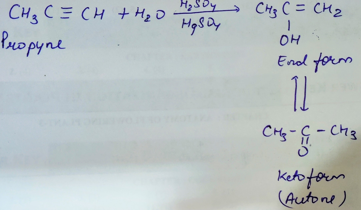 CH₃C ≡ CH + H₂O —H₂SO₄/HgSO₄→ CH₃C = CH₂
Propyne
OH
Enol form
⇅
CH₃ - C - CH₃
O
Ketoform
(Acetone)